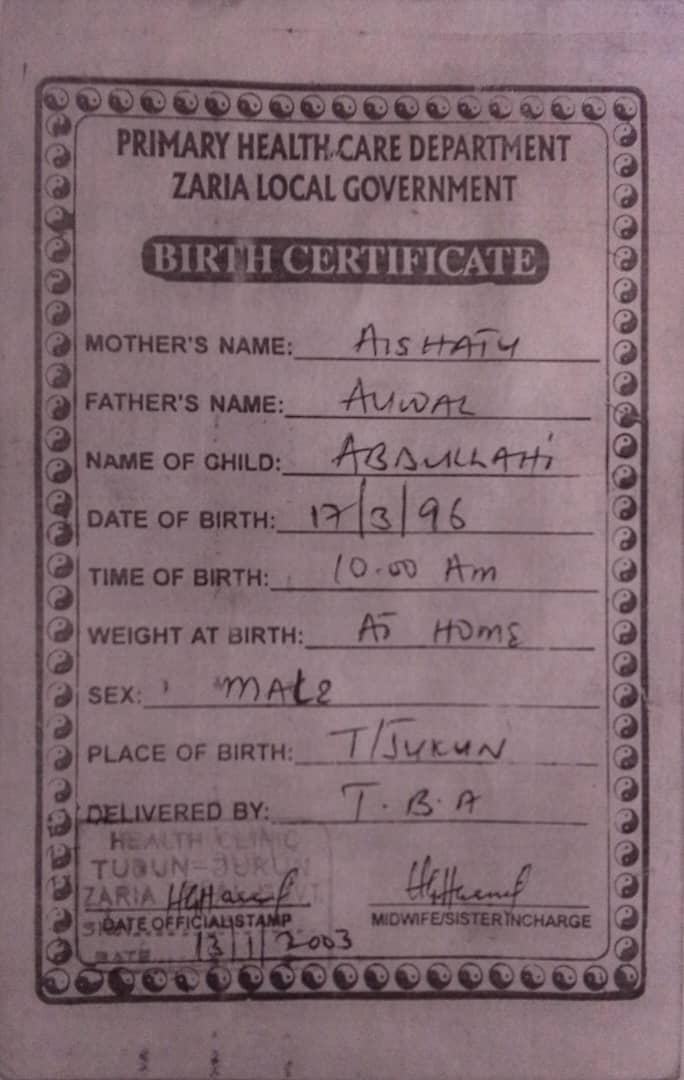 PRIMARY HEALTH CARE DEPARTMENT
ZARIA LOCAL GOVERNMENT
BIRTH CERTIFICATE
MOTHER'S NAME: AISHATU
FATHER'S NAME: AUWAL
NAME OF CHILD: ABDULLAHI
DATE OF BIRTH: 17/3/96
TIME OF BIRTH: 10.00 Am
WEIGHT AT BIRTH: AT HOME
SEX: MALE
PLACE OF BIRTH: T/JUKUN
DELIVERED BY: T.B.A
HEALTH CLINIC
TUDUN-JUKUN
ZARIA
DATE OFFICIAL STAMP MIDWIFE/SISTER INCHARGE
DATE 13/1/2003